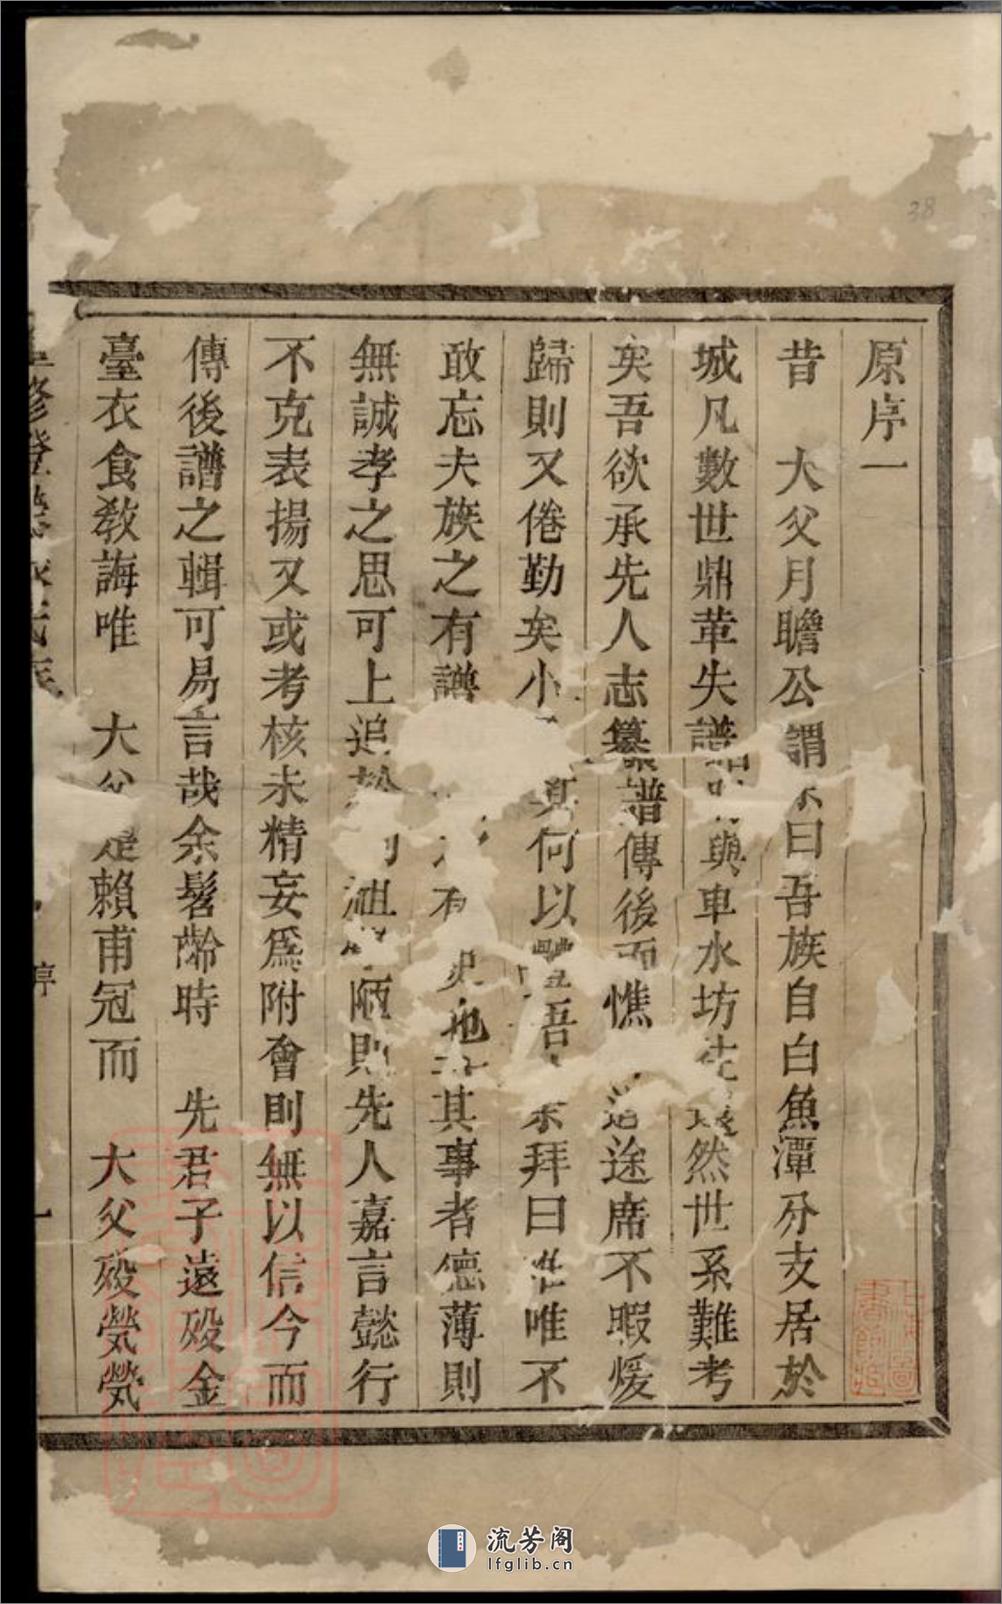 原序一
昔 大父月瞻公謂余曰吾族自白魚潭分支居於
城凡數世鼎革失譜與車水坊然世系難考
矣吾欲承先人志纂譜傳後而憔道途席不暇煖
歸則又倦勤矣小其何以豐吾余拜曰唯唯不
敢忘夫族之有譜有史也其事者德薄則
無誠孝之思可上追於祖陋則先人嘉言懿行
不克表揚又或考核未精妄爲附會則無以信今而
傳後譜之輯可易言哉余髫齡時 先君子遠歿金
臺衣食教誨唯 大父是賴甫冠而 大父歿煢煢
序
一
38
流芳阁
lfglib.cn